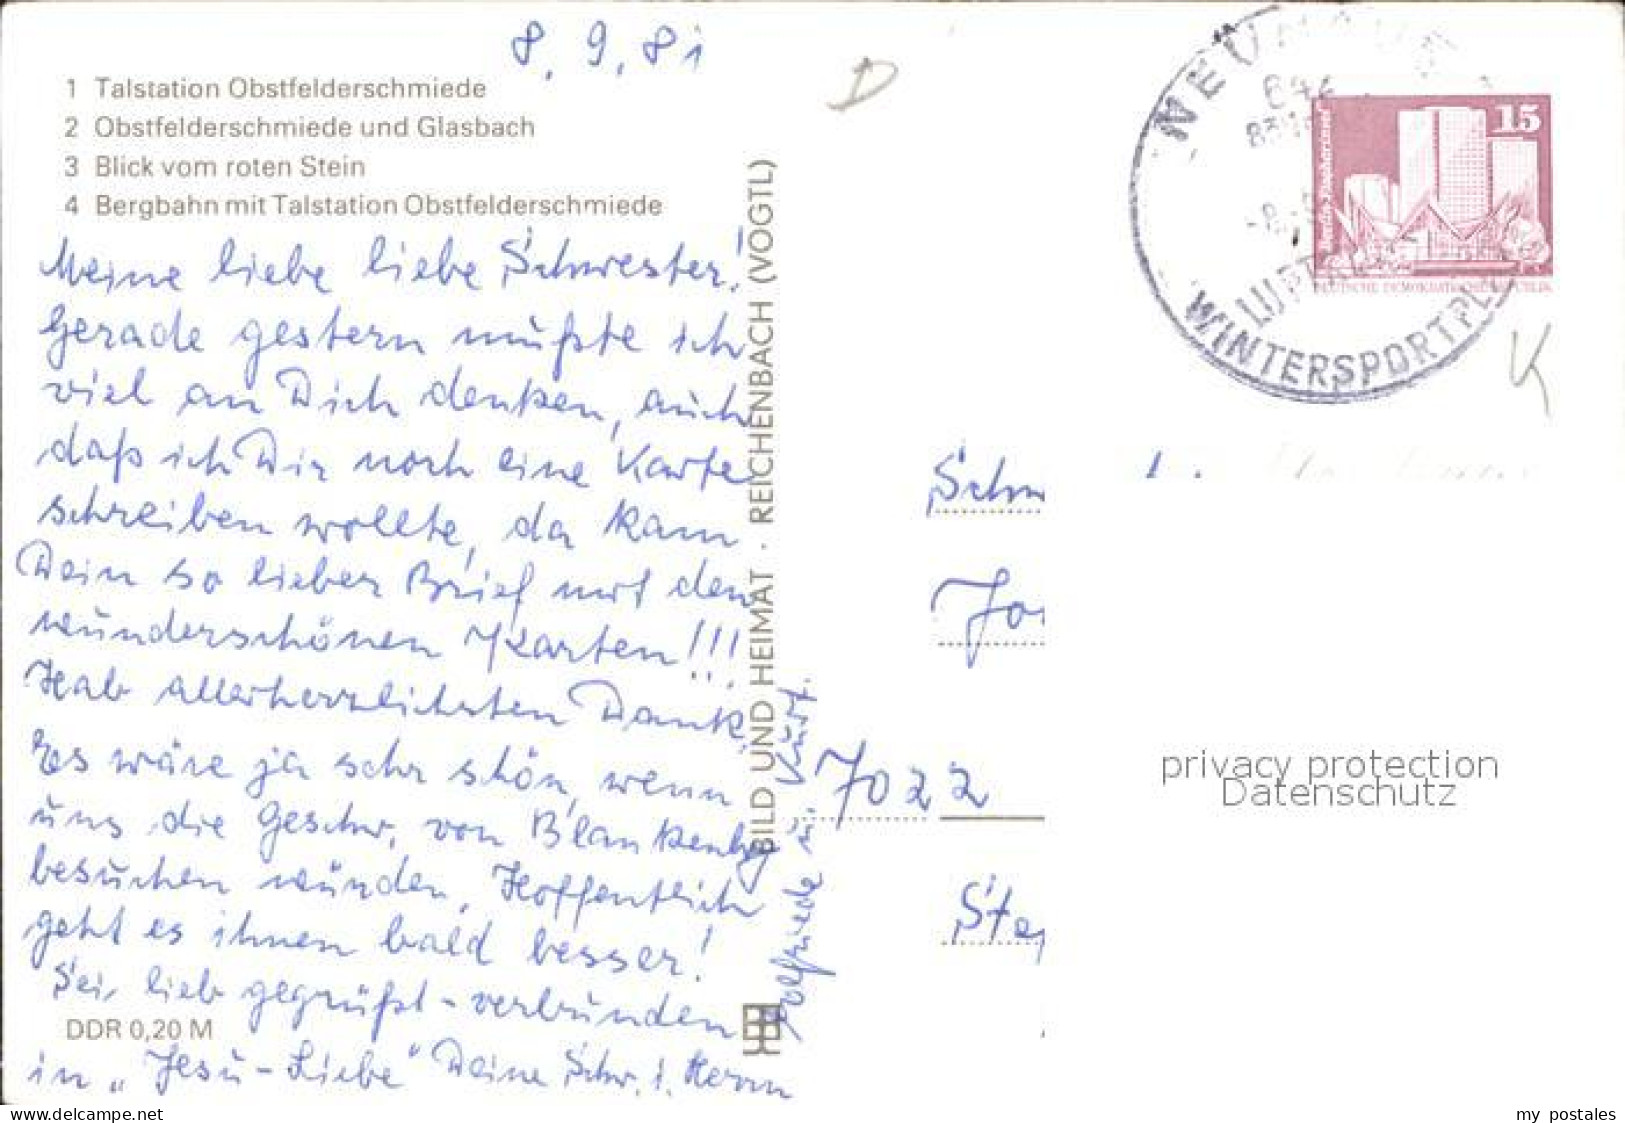 8.9.81
1 Talstation Obstfelderschmiede
2 Obstfelderschmiede und Glasbach
3 Blick vom roten Stein
4 Bergbahn mit Talstation Obstfelderschmiede
Meine liebe liebe Schwester!
Gerade gestern mußte ich
viel an Dich denken, auch
daß ich Dir noch eine Karte
schreiben wollte, da kam
Dein so lieber Brief mit den
wunderschönen Karten!!!
Hab allerherzlichsten Dank.
Es wäre ja sehr schön, wenn
uns die Geschw. von Blankenbg
besuchen würden. Hoffentlich
geht es ihnen bald besser!
Sei lieb gegrüßt - verbunden
in "Jesu-Liebe" Deine Schw. i. Herrn
DDR 0,20 M
BILD UND HEIMAT · REICHENBACH (VOGTL)
D
15
Berlin Fischerinsel
DEUTSCHE DEMOKRATISCHE REPUBLIK
WINTERSPORTPL
K
Schw
7022
privacy protection
Datenschutz
www.delcampe.net
my_postales